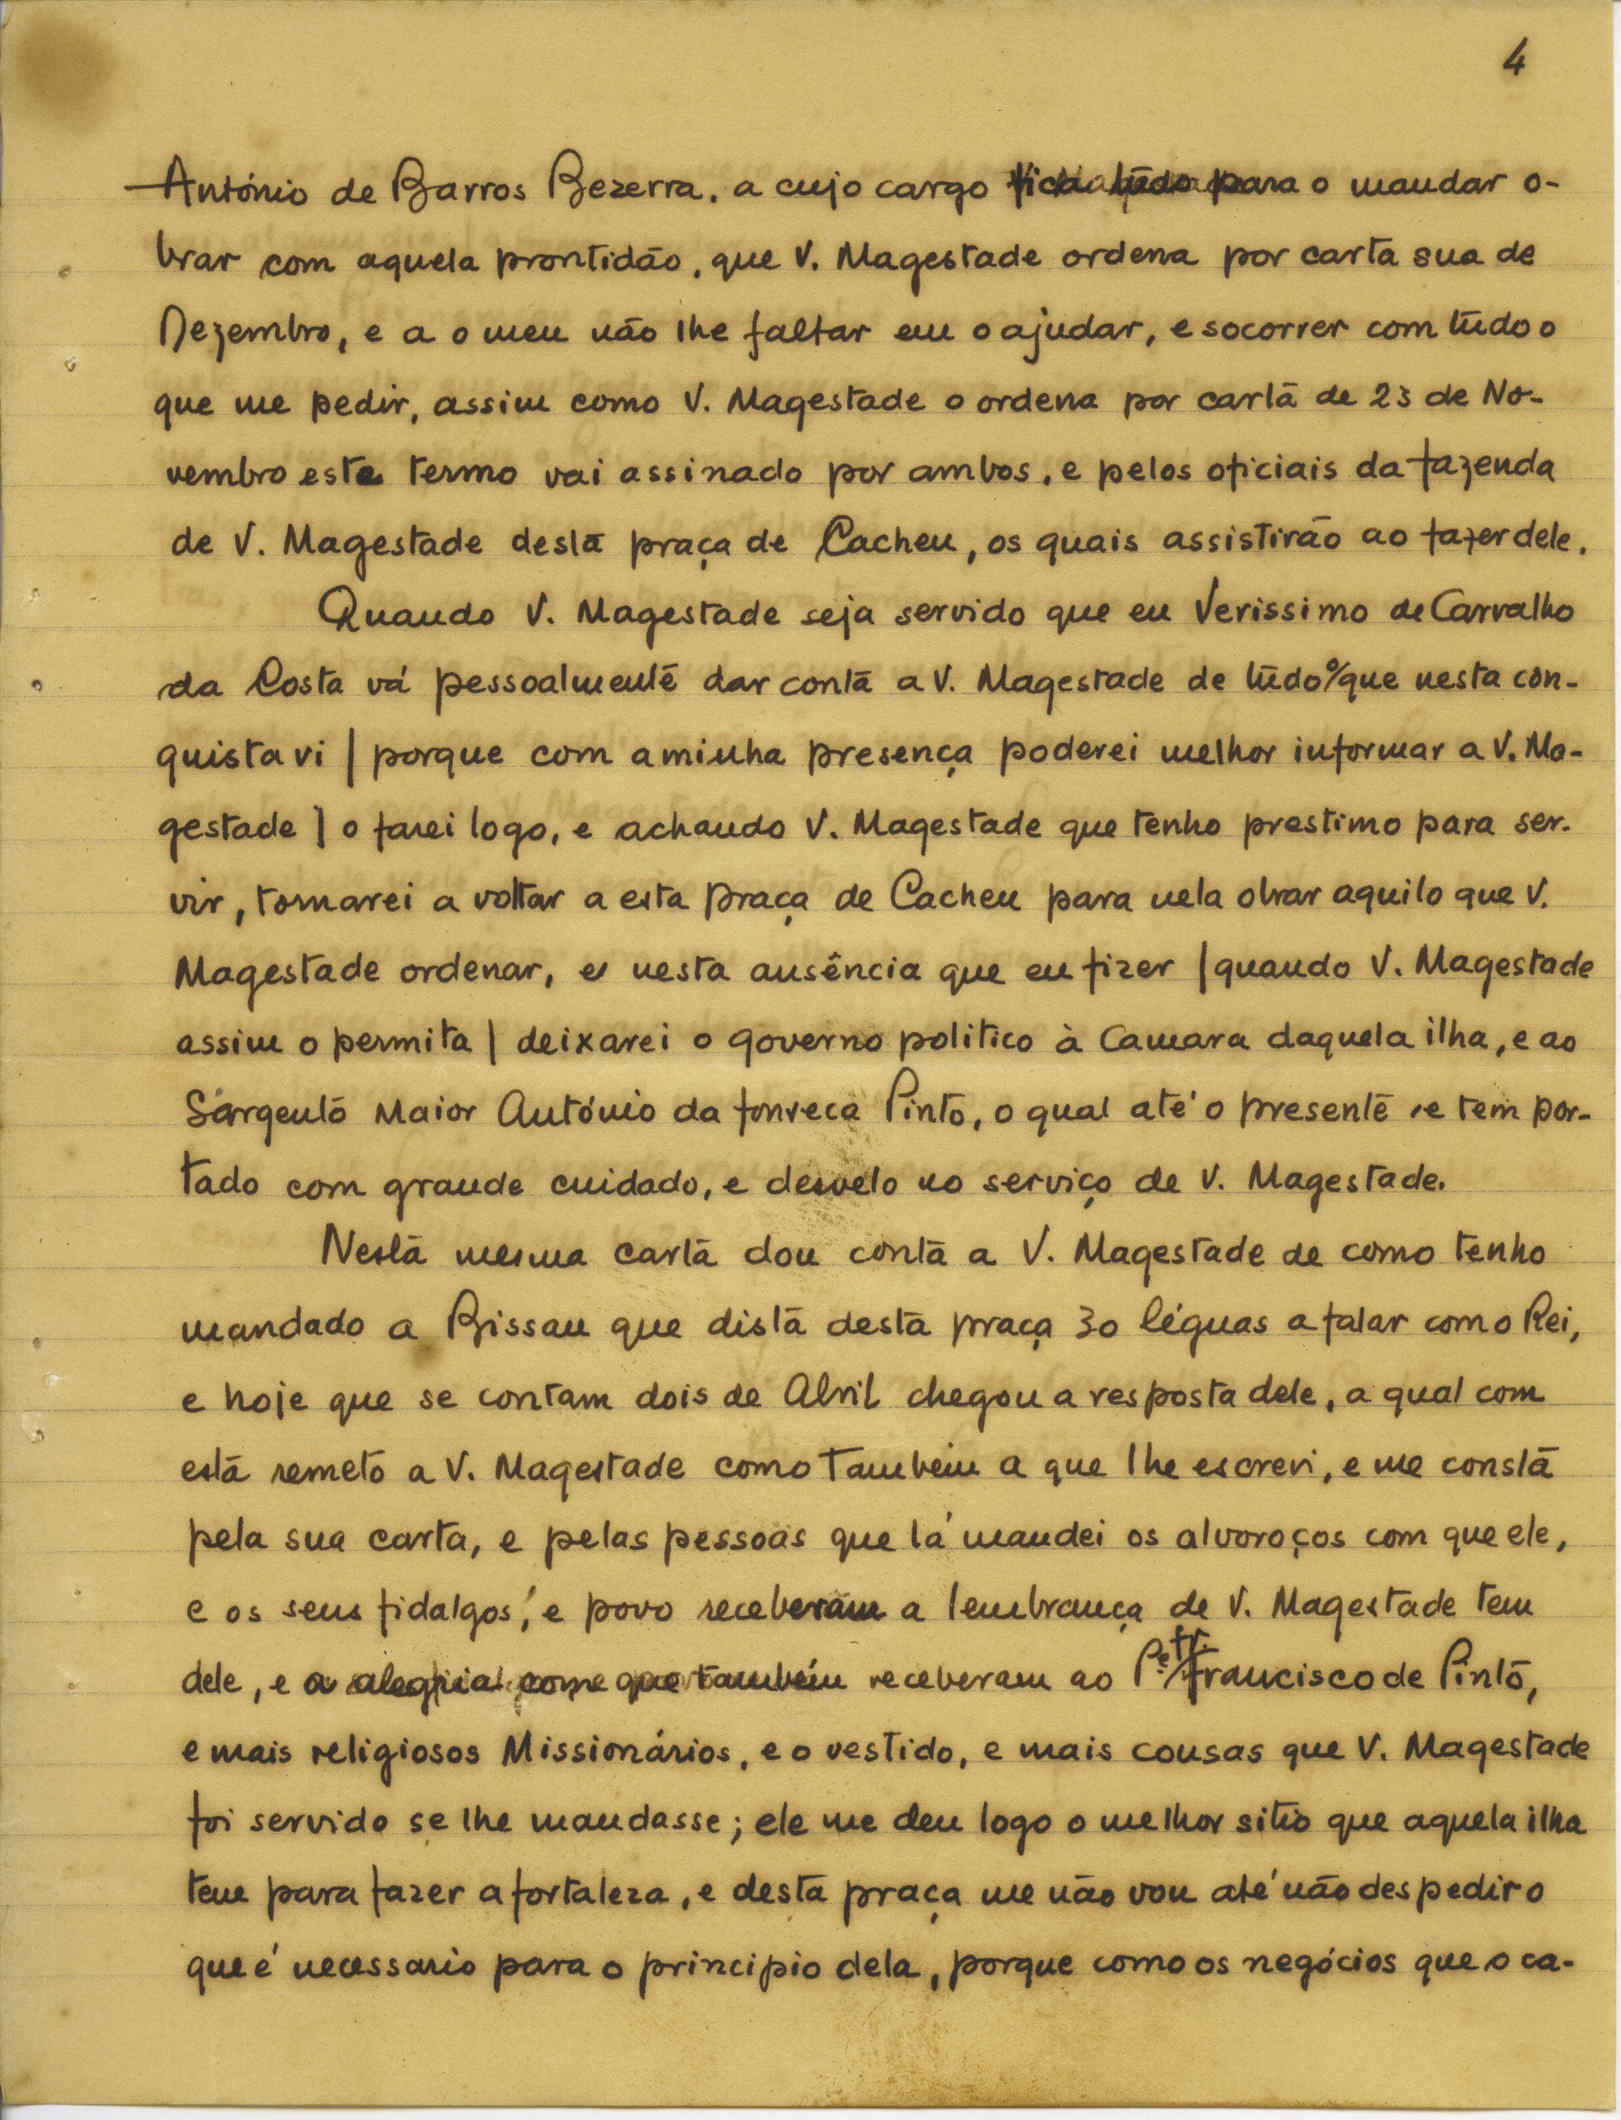 4
António de Barros Bezerra, a cujo cargo fica tudo para o mandar o-
brar com aquela prontidão, que V. Magestade ordena por carta sua de
Dezembro, e a o meu não lhe faltar em o ajudar, e socorrer com tudo o
que me pedir, assim como V. Magestade o ordena por carta de 23 de No-
vembro este termo vai assinado por ambos, e pelos oficiais da fazenda
de V. Magestade desta praça de Cacheu, os quais assistirão ao fazer dele.
Quando V. Magestade seja servido que eu Verissimo de Carvalho
da Costa vá pessoalmente dar conta a V. Magestade de tudo o que nesta con-
quista vi | porque com a minha presença poderei melhor informar a V. Ma-
gestade | o farei logo, e achando V. Magestade que tenho prestimo para ser-
vir, tornarei a voltar a esta praça de Cacheu para nela obrar aquilo que V.
Magestade ordenar, e nesta ausência que eu fizer | quando V. Magestade
assim o permita | deixarei o governo politico à Camara daquela ilha, e ao
Sargento Maior António da fonseca Pinto, o qual até o presente se tem por-
tado com grande cuidado, e desvelo no serviço de V. Magestade.
Nesta mesma carta dou conta a V. Magestade de como tenho
mandado a Bissau que dista desta praça 30 léguas a falar com o Rei,
e hoje que se contam dois de Abril chegou a resposta dele, a qual com
esta remeto a V. Magestade como também a que lhe escrevi, e me consta
pela sua carta, e pelas pessoas que lá mandei os alvoroços com que ele,
e os seus fidalgos, e povo receberam a lembrança de V. Magestade tem
dele, e a alegria com que também receberam ao Pe. fr. Francisco de Pinto,
e mais religiosos Missionários, e o vestido, e mais cousas que V. Magestade
foi servido se lhe mandasse; ele me deu logo o melhor sitio que aquela ilha
tem para fazer a fortaleza, e desta praça me não vou até não despedir o
que é necessario para o principio dela, porque como os negócios que o ca-